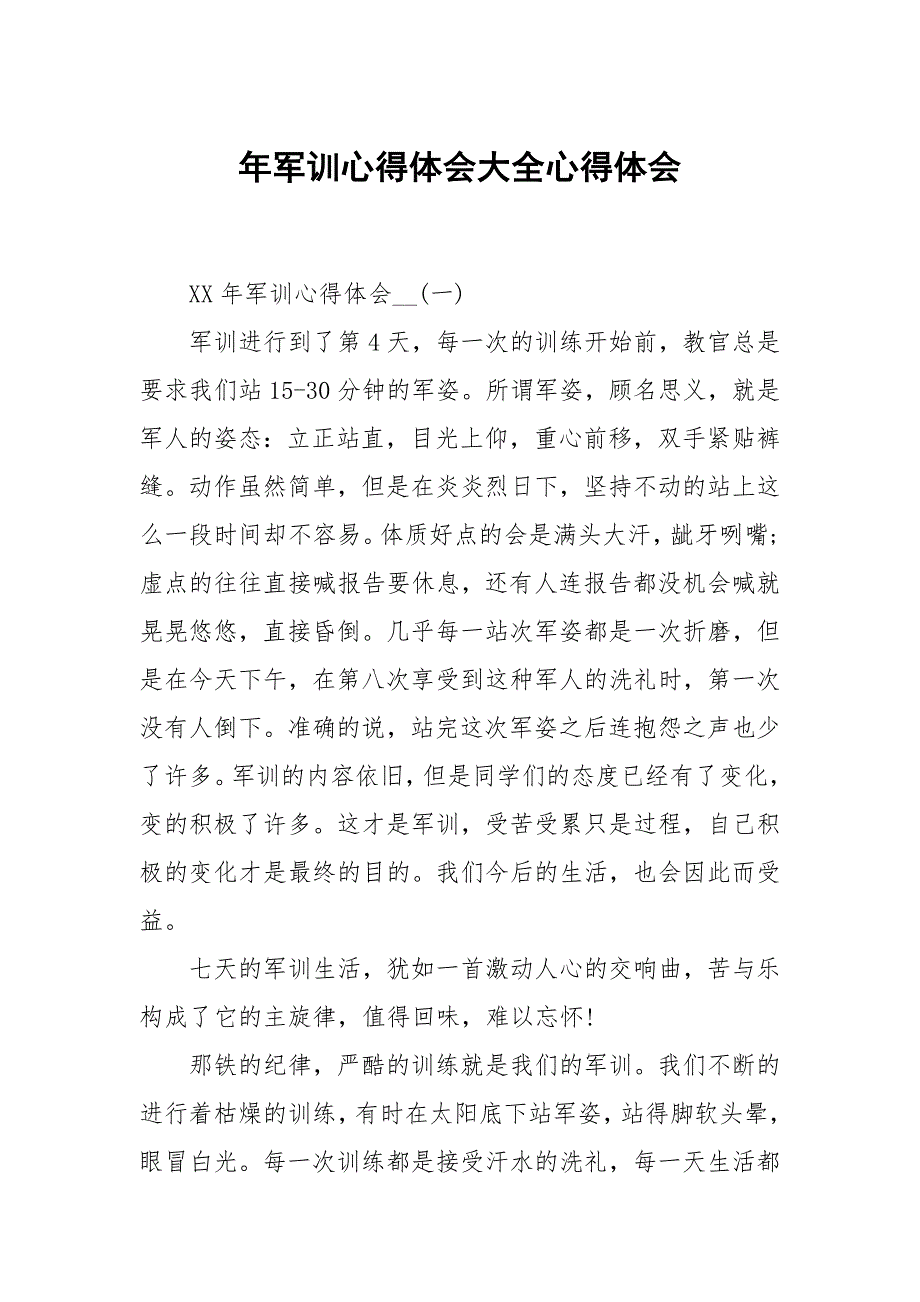 年军训心得体会大全心得体会
XX 年军训心得体会__(一)
军训进行到了第 4 天，每一次的训练开始前，教官总是
要求我们站 15-30 分钟的军姿。所谓军姿，顾名思义，就是
军人的姿态：立正站直，目光上仰，重心前移，双手紧贴裤
缝。动作虽然简单，但是在炎炎烈日下，坚持不动的站上这
么一段时间却不容易。体质好点的会是满头大汗，龇牙咧嘴;
虚点的往往直接喊报告要休息，还有人连报告都没机会喊就
晃晃悠悠，直接昏倒。几乎每一站次军姿都是一次折磨，但
是在今天下午，在第八次享受到这种军人的洗礼时，第一次
没有人倒下。准确的说，站完这次军姿之后连抱怨之声也少
了许多。军训的内容依旧，但是同学们的态度已经有了变化，
变的积极了许多。这才是军训，受苦受累只是过程，自己积
极的变化才是最终的目的。我们今后的生活，也会因此而受
益。
七天的军训生活，犹如一首激动人心的交响曲，苦与乐
构成了它的主旋律，值得回味，难以忘怀!
那铁的纪律，严酷的训练就是我们的军训。我们不断的
进行着枯燥的训练，有时在太阳底下站军姿，站得脚软头晕，
眼冒白光。每一次训练都是接受汗水的洗礼，每一天生活都